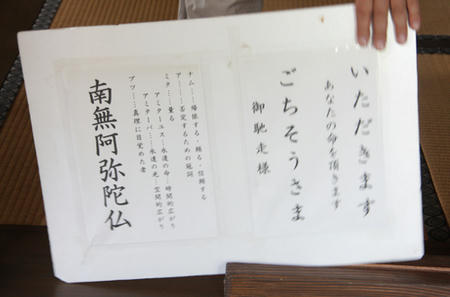 いただきます
あなたの命を頂きます
ごちそうさま
御馳走様
ナム……帰依する・頼る・信頼する
ア………否定するための冠詞
ミタ……量る
アミターユス…永遠の命…時間的広がり
アミターバ……永遠の光…空間的広がり
ブツ……真理に目覚めた者
南無阿弥陀仏